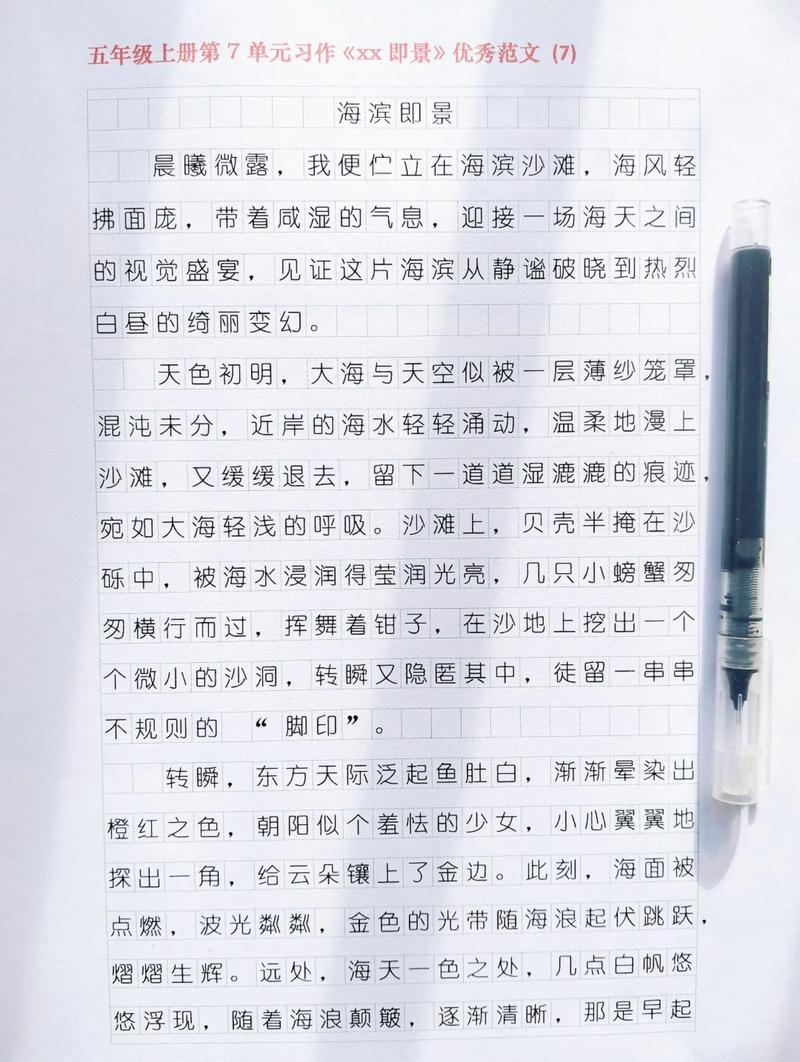 五年级上册第7单元习作《xx即景》优秀范文(7)
海滨即景
晨曦微露，我便伫立在海滨沙滩，海风轻
拂面庞，带着咸湿的气息，迎接一场海天之间
的视觉盛宴，见证这片海滨从静谧破晓到热烈
白昼的绮丽变幻。
天色初明，大海与天空似被一层薄纱笼罩，
混沌未分，近岸的海水轻轻涌动，温柔地漫上
沙滩，又缓缓退去，留下一道道湿漉漉的痕迹，
宛如大海轻浅的呼吸。沙滩上，贝壳半掩在沙
砾中，被海水浸润得莹润光亮，几只小螃蟹匆
匆横行而过，挥舞着钳子，在沙地上挖出一个
个微小的沙洞，转瞬又隐匿其中，徒留一串串
不规则的 “脚印”。
转瞬，东方天际泛起鱼肚白，渐渐晕染出
橙红之色，朝阳似个羞怯的少女，小心翼翼地
探出一角，给云朵镶上了金边。此刻，海面被
点燃，波光粼粼，金色的光带随海浪起伏跳跃，
熠熠生辉。远处，海天一色之处，几点白帆悠
悠浮现，随着海浪颠簸，逐渐清晰，那是早起